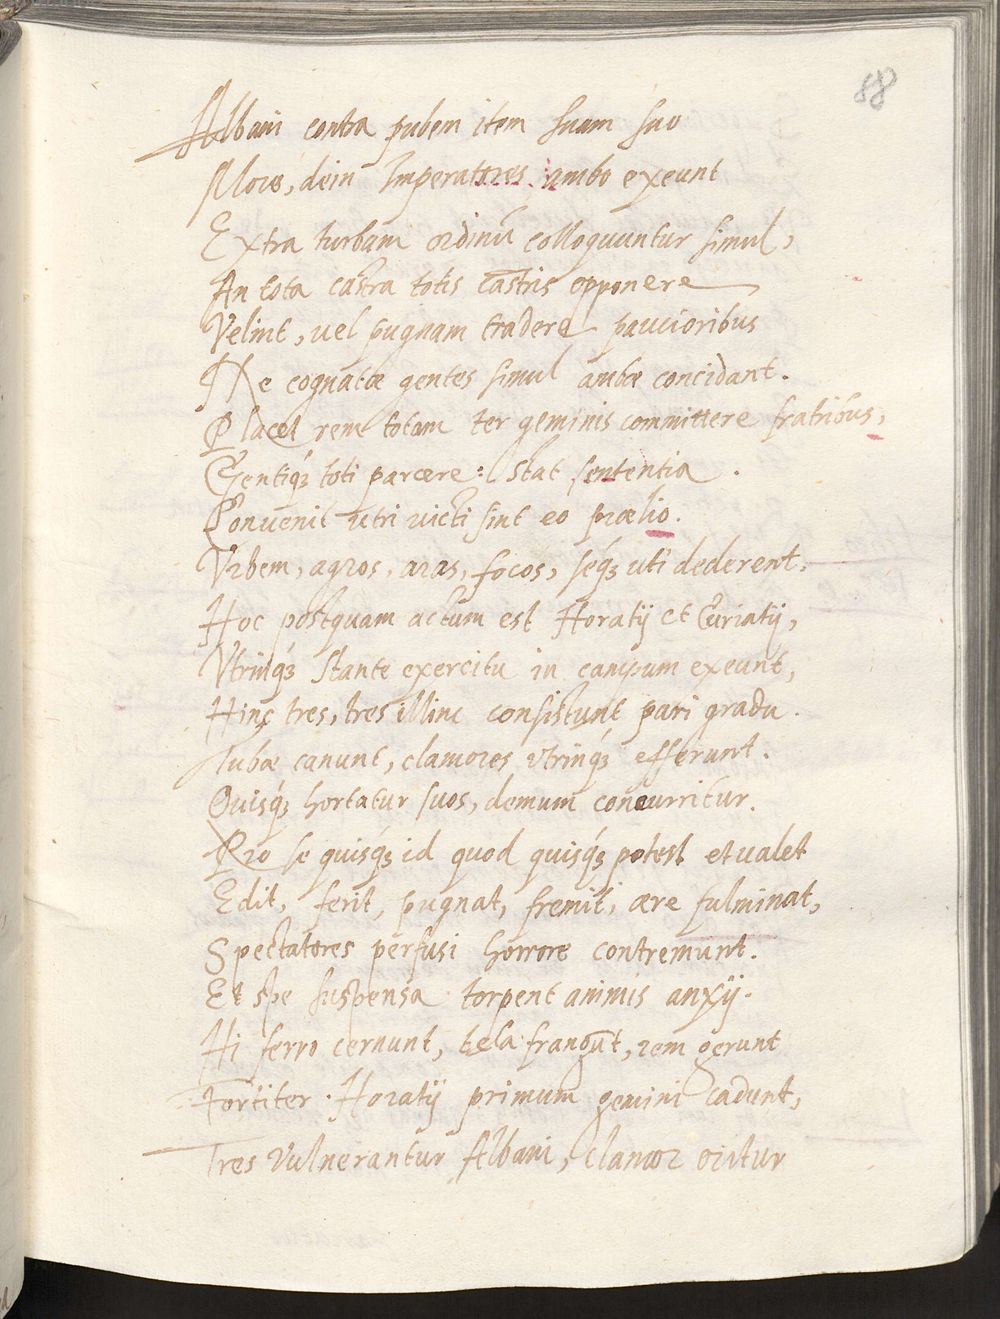 88
Albani contra pubem item suam suo
More, dein Imperatores ambo exeunt
Extra turbam ordinū colloquuntur simul,
An tota castra totis castris opponere
Velint, uel pugnam tradere paucioribus
Ne cognatæ gentes simul ambæ concidant.
Placet rem totam ter geminis committere fratribus,
Gentiq́ꝫ toti parcere: Stat sententia.
Conuenit utri uicti sint eo prælio.
Vrbem, agros, aras, focos, seq́ꝫ uti dederent.
Hoc postquam actum est Horatij et Curiatij,
Vtrinq́ꝫ stante exercitu in campum exeunt,
Hinc tres, tres illinc consistunt pari gradu.
Tubæ canunt, clamores vtrinq́ꝫ efferunt.
Quisq́ꝫ hortatur suos, demum concurritur.
Pro se quisq́ꝫ id quod quisq́ꝫ potest et valet
Edit, ferit, pugnat, fremit, ære fulminat,
Spectatores perfusi horrore contremunt.
Et spe suspensa torpent animis anxij.
Hi ferro cernunt, tela frangūt, rem gerunt
Fortiter. Horatij primum gemini cadunt,
Tres vulnerantur Albani, clamor oritur